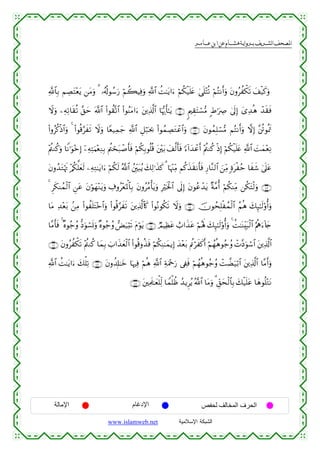 المصحف الشريف برواية هشام عن ابن عامر
وَكَيْفَ تَكْفُرُونَ وَأَنتُمْ تُتْلَىٰ عَلَيْكُمْ ءَايَٰتُ ٱللَّهِ وَفِيكُمْ رَسُولُهُۥ ۗ وَمَن يَعْتَصِم بِٱللَّهِ
فَقَدْ هُدِىَ إِلَىٰ صِرَٰطٍ مُّسْتَقِيمٍ ۝ يَٰٓأَيُّهَا ٱلَّذِينَ ءَامَنُوا۟ ٱتَّقُوا۟ ٱللَّهَ حَقَّ تُقَاتِهِۦ وَلَا
تَمُوتُنَّ إِلَّا وَأَنتُم مُّسْلِمُونَ ۝ وَٱعْتَصِمُوا۟ بِحَبْلِ ٱللَّهِ جَمِيعًا وَلَا تَفَرَّقُوا۟ ۚ وَٱذْكُرُوا۟
نِعْمَتَ ٱللَّهِ عَلَيْكُمْ إِذْ كُنتُمْ أَعْدَآءً فَأَلَّفَ بَيْنَ قُلُوبِكُمْ فَأَصْبَحْتُم بِنِعْمَتِهِۦٓ إِخْوَٰنًا وَكُنتُمْ
عَلَىٰ شَفَا حُفْرَةٍ مِّنَ ٱلنَّارِ فَأَنقَذَكُم مِّنْهَا ۗ كَذَٰلِكَ يُبَيِّنُ ٱللَّهُ لَكُمْ ءَايَٰتِهِۦ لَعَلَّكُمْ تَهْتَدُونَ
۝ وَلْتَكُن مِّنكُمْ أُمَّةٌ يَدْعُونَ إِلَى ٱلْخَيْرِ وَيَأْمُرُونَ بِٱلْمَعْرُوفِ وَيَنْهَوْنَ عَنِ ٱلْمُنكَرِ ۚ
وَأُو۟لَٰٓئِكَ هُمُ ٱلْمُفْلِحُونَ ۝ وَلَا تَكُونُوا۟ كَٱلَّذِينَ تَفَرَّقُوا۟ وَٱخْتَلَفُوا۟ مِنۢ بَعْدِ مَا
جَآءَهُمُ ٱلْبَيِّنَٰتُ ۚ وَأُو۟لَٰٓئِكَ لَهُمْ عَذَابٌ عَظِيمٌ ۝ يَوْمَ تَبْيَضُّ وُجُوهٌ وَتَسْوَدُّ وُجُوهٌ ۚ فَأَمَّا
ٱلَّذِينَ ٱسْوَدَّتْ وُجُوهُهُمْ أَكَفَرْتُم بَعْدَ إِيمَٰنِكُمْ فَذُوقُوا۟ ٱلْعَذَابَ بِمَا كُنتُمْ تَكْفُرُونَ ۝
وَأَمَّا ٱلَّذِينَ ٱبْيَضَّتْ وُجُوهُهُمْ فَفِى رَحْمَةِ ٱللَّهِ هُمْ فِيهَا خَٰلِدُونَ ۝ تِلْكَ ءَايَٰتُ ٱللَّهِ
نَتْلُوهَا عَلَيْكَ بِٱلْحَقِّ ۗ وَمَا ٱللَّهُ يُرِيدُ ظُلْمًا لِّلْعَٰلَمِينَ ۝
الحرف المخالف لحفص الإدغام الإمالة
الشبكة الإسلامية www.islamweb.net